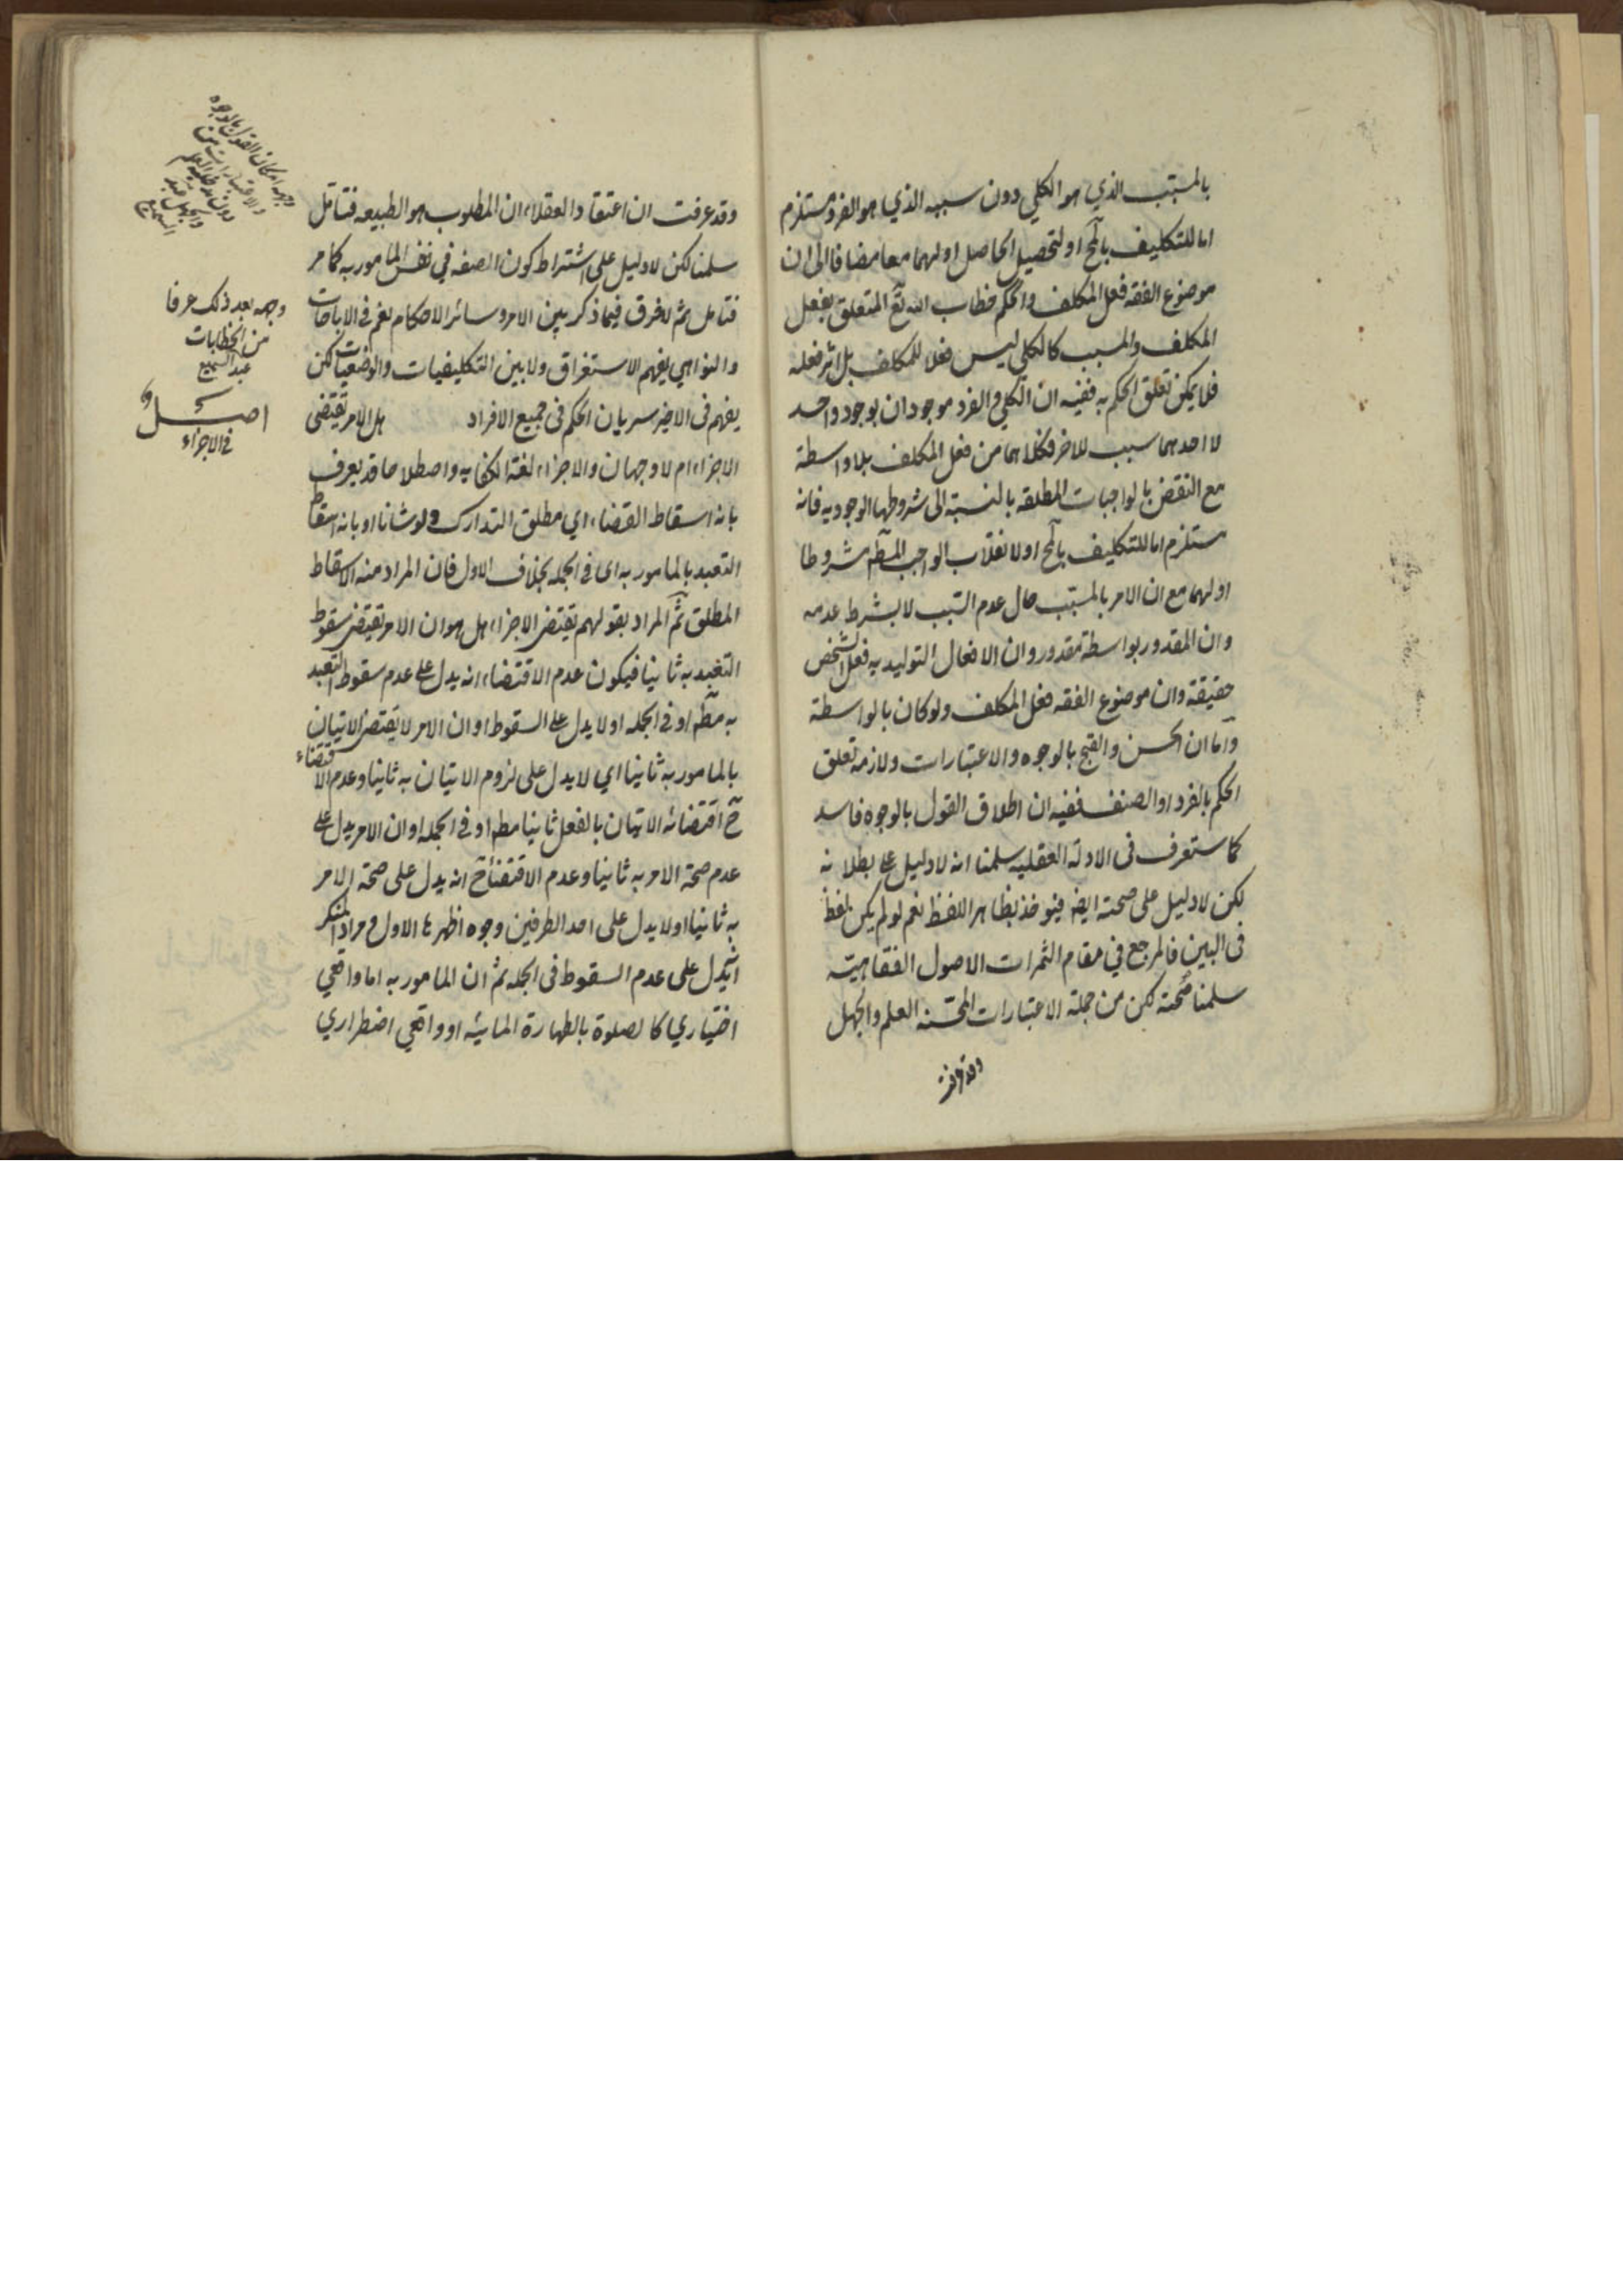 بالمسبب الذي هو الكلي دون سببه الذي هو الفرد مستلزم
اما للتكليف بالمح او لتحصيل الحاصل او لهما معا مضافا الى ان
موضوع الفقه فعل المكلف والحكم خطاب الله تع المتعلق بفعل
المكلف والمسبب كالكلي ليس فعلا للمكلف بل اثر فعله
فلا يمكن تعلق الحكم به ففيه ان الكلي والفرد موجودان بوجود واحد
لا احدهما سبب للاخر فكلاهما من فعل المكلف بلا واسطة
مع النقض بالواجبات المطلقه بالنسبة الى شروطها الوجوديه فانه
مستلزم اما للتكليف بالمح او لانقلاب الواجب المطم مشروطا
او لهما مع ان الامر بالمسبب حال عدم السبب لا بشرط عدمه
وان المقدور بواسطة مقدور وان الافعال التوليديه فعل الشخص
حقيقة وان موضوع الفقه فعل المكلف ولو كان بالواسطة
واما ان الحسن والقبح بالوجوه والاعتبارات ولازمه تعلق
الحكم بالفرد او الصنف ففيه ان اطلاق القول بالوجوه فاسد
كما ستعرف فى الادلة العقليه سلمنا انه لا دليل على بطلانه
لكن لا دليل على صحته ايضا فيؤخذ بظاهر اللفظ نعم لو لم يكن لفظ
فى البين فالمرجع في مقام الثمرات الاصول الفقاهيته
سلمنا صحته لكن من جملة الاعتبارات المحسنه العلم والجهل
وقد عرفت
وقد عرفت ان اعتقاد العقلاء ان المطلوب هو الطبيعه فتامل
سلمنا لكن لا دليل على اشتراط كون الصفه في نفس المامور به كما مر
فتامل ثم لا فرق فيما ذكر بين الامر وسائر الاحكام نعم فى الاباحات
والنواهي يفهم الاستغراق ولا بين التكليفيات والوضعيات لكن
يفهم فى الاخير سريان الحكم فى جميع الافراد هل الامر يقتضى
الاجزاء ام لا وجهان والاجزاء لغة الكفايه واصطلاحا قد يعرف
بانه اسقاط القضاء اي مطلق التدارك ولو شانا او بانه اسقاط
التعبد بالمامور به اى فى الجمله بخلاف الاول فان المراد منه الاسقاط
المطلق ثم المراد بقولهم يقتضى الاجزاء هل هو ان الامر يقتضى سقوط
التعبد به ثانيا فيكون عدم الاقتضاء انه يدل على عدم سقوط التعبد
به مطم او فى الجمله او لا يدل على السقوط او ان الامر لا يقتضى الاتيان
بالمامور به ثانيا اي لا يدل على لزوم الاتيان به ثانيا وعدم الاقتضاء
ح اقتضائه الاتيان بالفعل ثانيا مطم او فى الجمله او ان الامر يدل على
عدم صحة الامر به ثانيا وعدم الاقتضاء ح انه يدل على صحة الامر
به ثانيا او لا يدل على احد الطرفين وجوه اظهرها الاول ومراد المنكر
انه يدل على عدم السقوط فى الجمله ثم ان المامور به اما واقعي
اختياري كالصلوة بالطهارة المائيه او واقعي اضطراري
وجهه امكان القول بالوجوه
والاعتبارات من
دون مدخلية العلم
والجهل عبد
السميع
وجهه بعد ذلك عرفا
من الخطابات
عبد السميع
اصل
فى الاجزاء